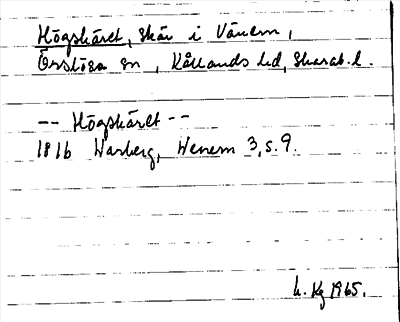 Högskäret, skär i Vänern,
Örslösa sn, Kållands hd, Skarab. l.
-- Högskäret --
1816 Warberg, Wenern 3, s. 9.
L. Kg 1965.